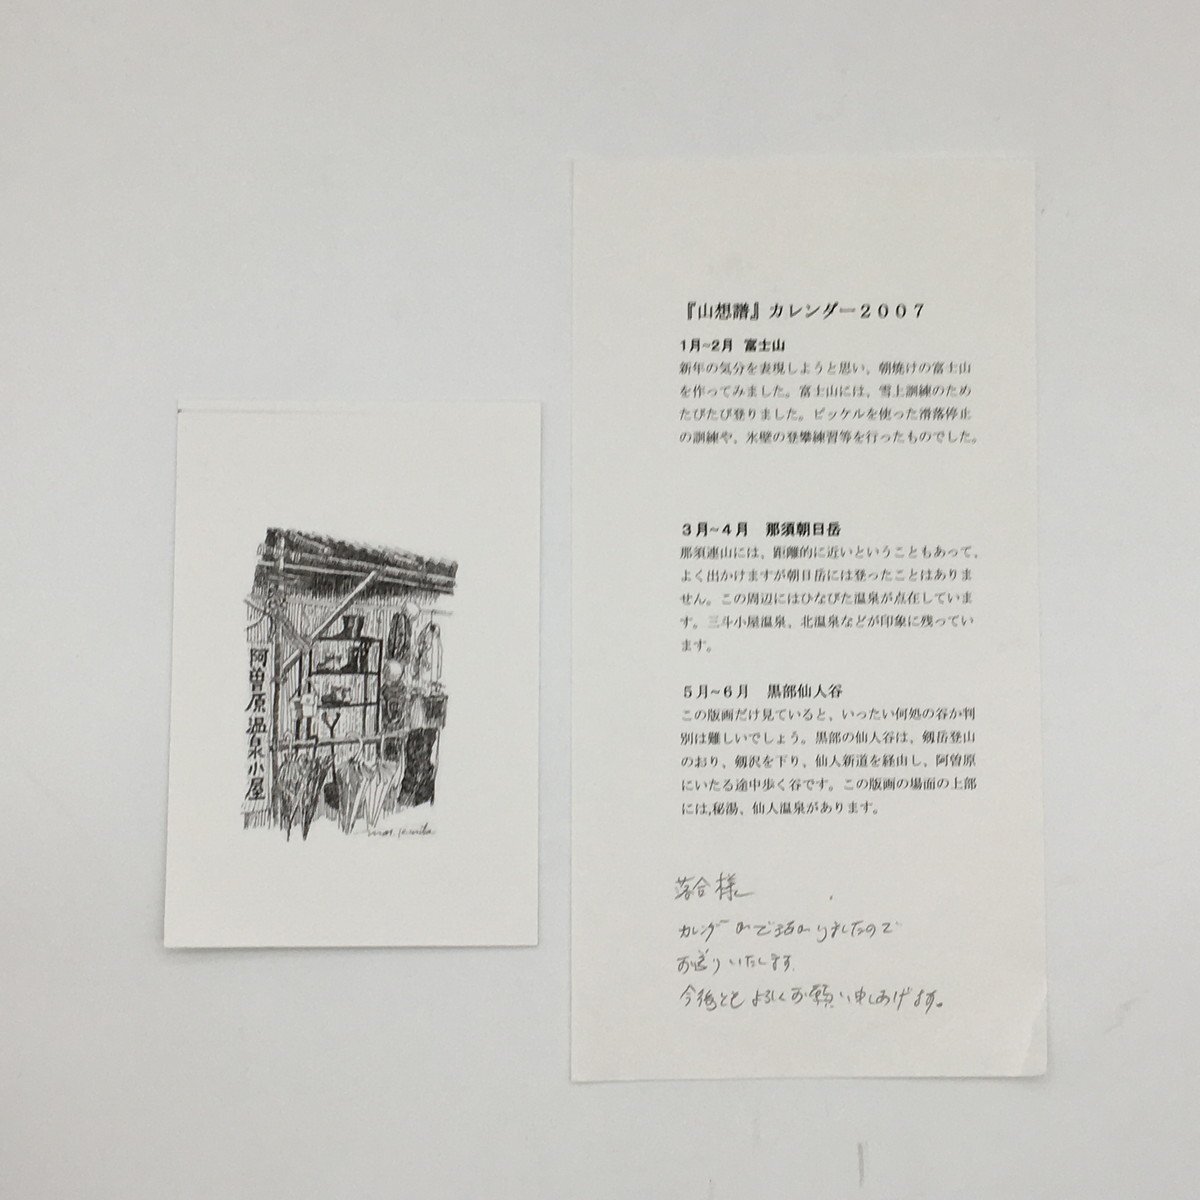 阿曽原温泉小屋
『山想譜』カレンダー２００７
1月~2月 富士山
新年の気分を表現しようと思い、朝焼けの富士山
を作ってみました。富士山には、雪上訓練のため
たびたび登りました。ピッケルを使った滑落停止
の訓練や、氷壁の登攀練習等を行ったものでした。
３月~４月　那須朝日岳
那須連山には、距離的に近いということもあって、
よく出かけますが朝日岳には登ったことはありま
せん。この周辺にはひなびた温泉が点在していま
す。三斗小屋温泉、北温泉などが印象に残ってい
ます。
５月~６月　黒部仙人谷
この版画だけ見ていると、いったい何処の谷か判
別は難しいでしょう。黒部の仙人谷は、剱岳登山
のおり、剱沢を下り、仙人新道を経由し、阿曽原
にいたる途中歩く谷です。この版画の場面の上部
には,秘湯、仙人温泉があります。
落合様
カレンダーができ上がりましたので
お送りいたします.
今後ともよろしくお願い申しあげます。